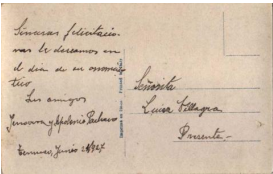 Sinceras felicitacio-
nes le deseamos en
el dia de su onomás-
tico
Sus amigos
Jenoveva y Apolonio Pacheco
Temuco, Junio 21/927
Señorita
Luisa Villagra
Presente.-